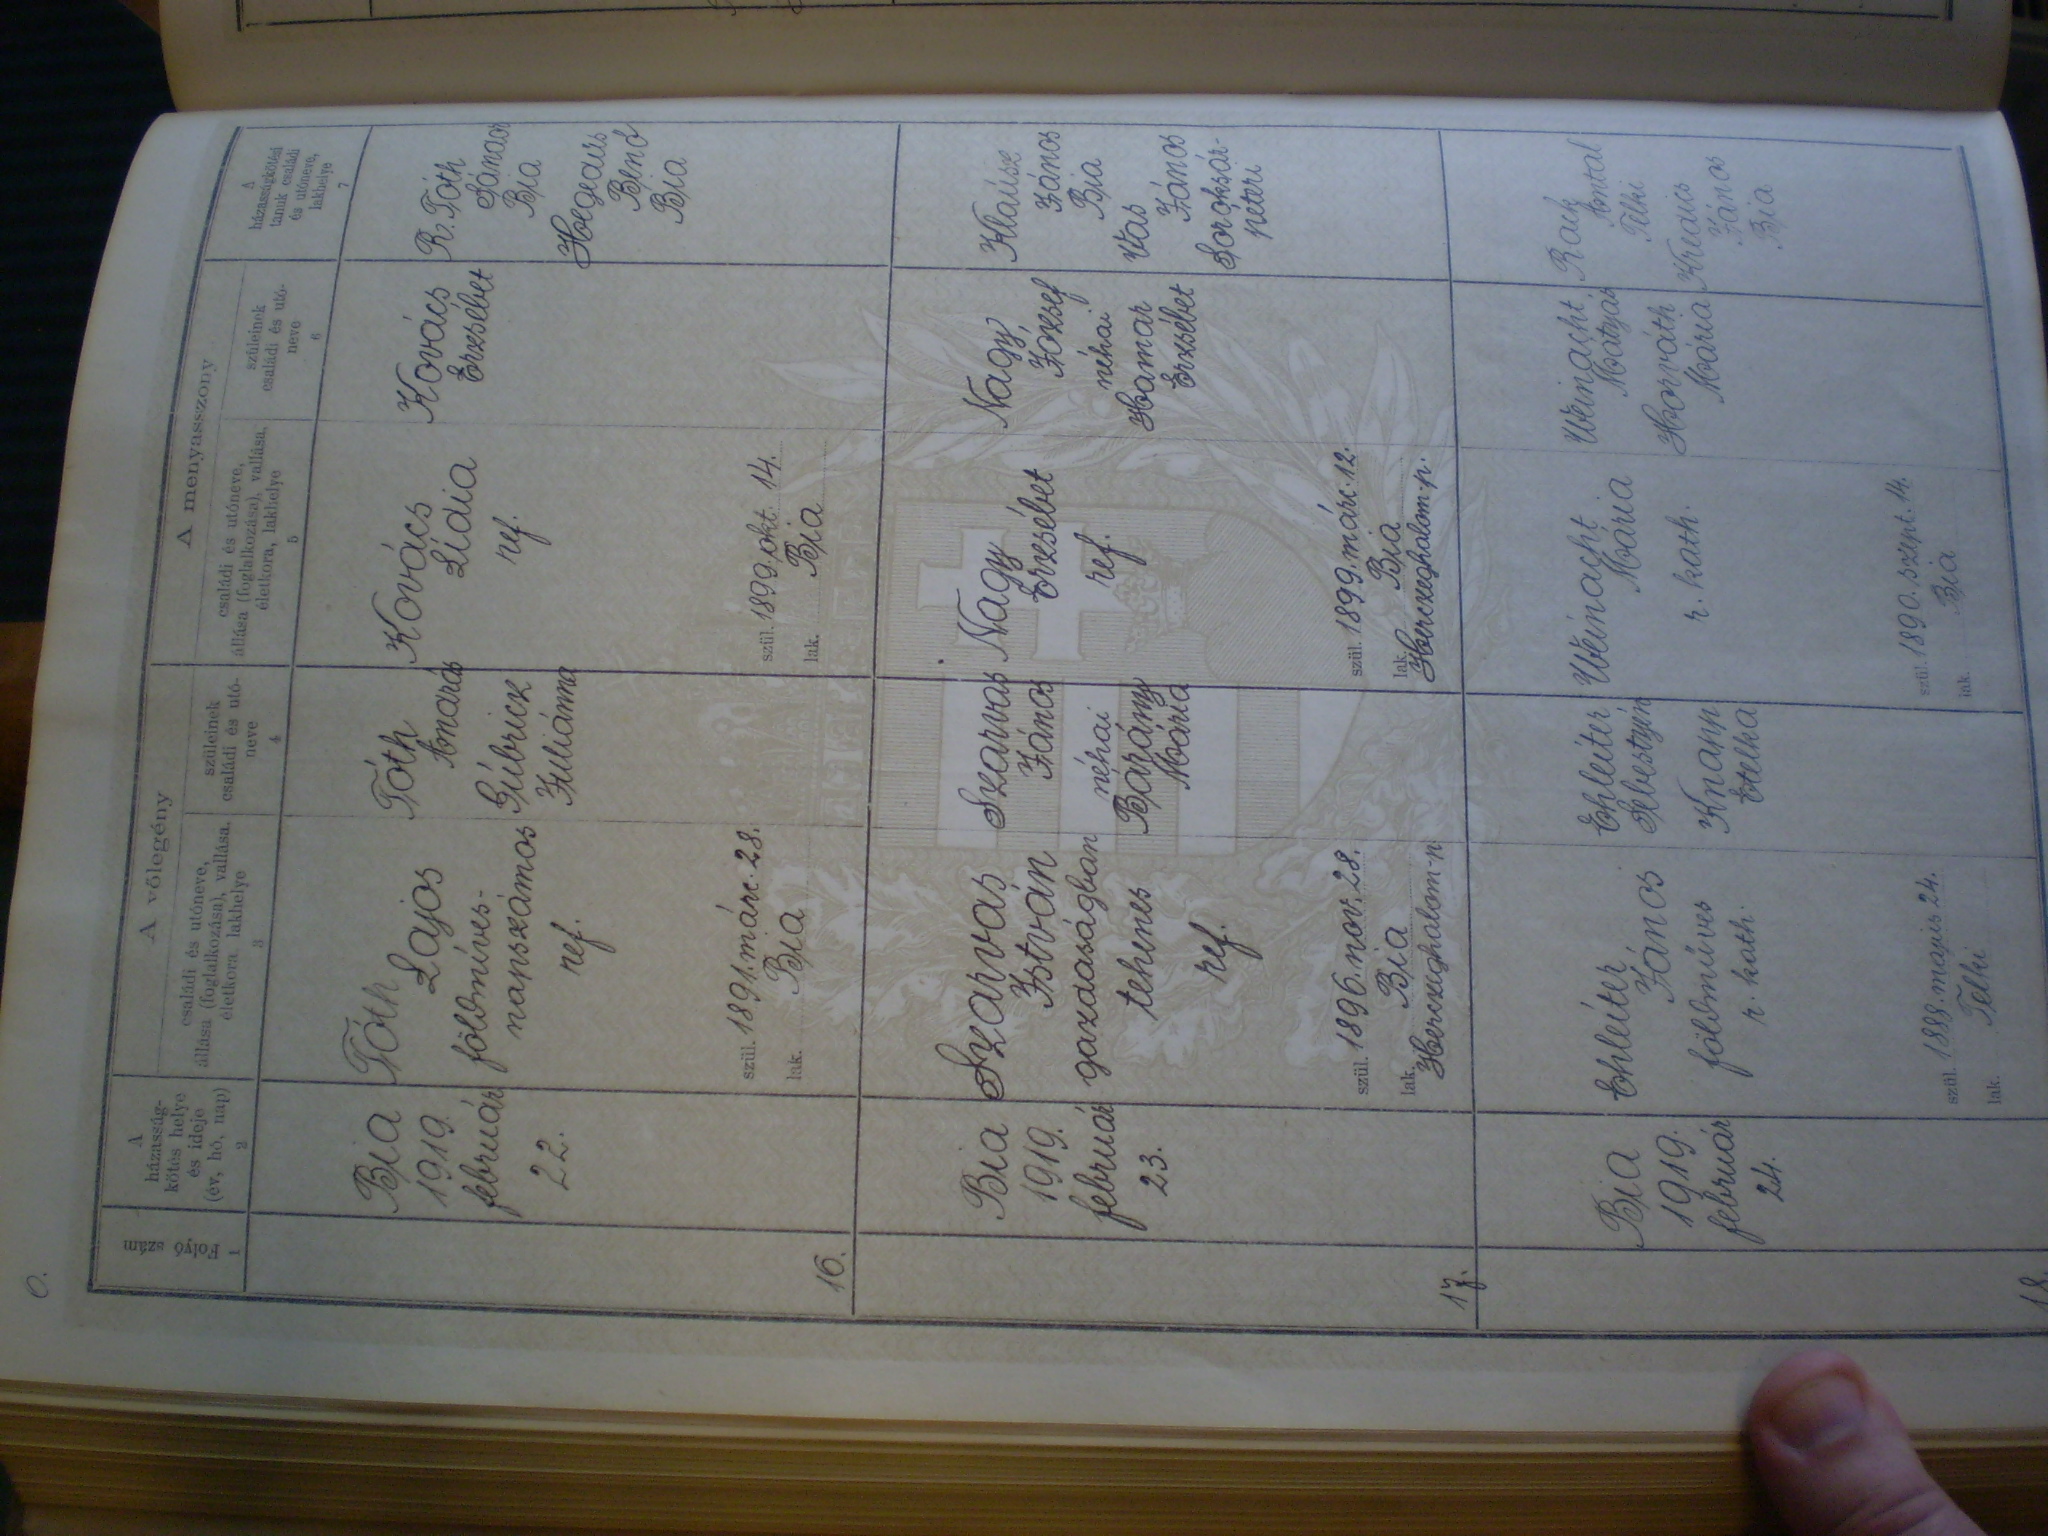 A házasság-
kötés helye
és ideje
(év, hó, nap)
2
Folyó
szám
1
A vőlegény
családi és utóneve,
állása (foglalkozása), vallása,
életkora, lakhelye
3
szüleinek
családi és utó-
neve
4
A menyasszony
családi és utóneve,
állása (foglalkozása), vallása,
életkora, lakhelye
5
szüleinek
családi és utó-
neve
6
A
házasságkötési
tanuk családi
és utóneve,
lakhelye
7
16.
Bia
1919.
február
22.
Tóth
Lajos
földmíves-
napszámos
ref.
szül. 1891. márc. 28.
Bia
lak.
Tóth
András
Gubrick
Juliánna
Kovács
Lídia
ref.
szül. 1899. okt. 14.
Bia
lak.
Kovács
Erzsébet
R. Tóth
Sándor
Bia
Hegedüs
Benő
Bia
17.
Bia
1919.
február
23.
Szarvas
István
gazdaságban
tehenes
ref.
szül. 1896. nov. 28.
Bia
lak.
Herczeghalom-p.
Szarvas
János
néhai
Bárány
Mária
Nagy
Erzsébet
ref.
szül. 1899. márc. 12.
Bia
lak.
Herczeghalom-p.
Nagy
József
néhai
Hamar
Erzsébet
János
Bia
Vas
János
Soroksár-
péteri
18.
Bia
1919.
február
24.
Ehleiter
János
földmíves
r. kath.
szül. 1888. május 24.
Telki
lak.
Ehleiter
Sebestyén
Knapp
Etelka
Weinacht
Mária
r. kath.
szül. 1890. szept. 14.
Bia
lak.
Weinacht
Mátyás
Horváth
Mária
Antal
Telki
János
Bia